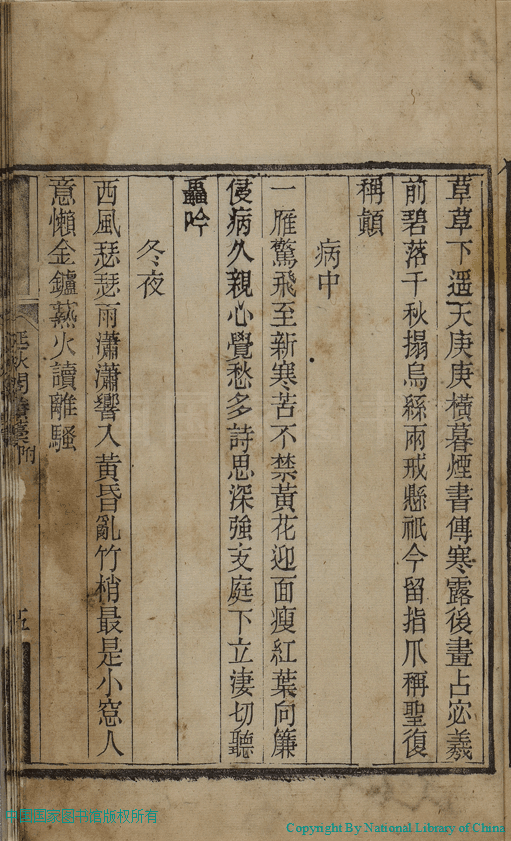 草草下遥天庚庚橫暮煙書傳寒露後畫占宓羲
前碧落千秋搨烏絲兩戒懸祇今留指爪稱聖復
稱顛
病中
一雁驚飛至新寒苦不禁黃花迎面瘦紅葉向簾
侵病久親心覺愁多詩思深強支庭下立淒切聽
蟲吟
冬夜
西風瑟瑟雨瀟瀟響入黃昏亂竹梢最是小窓人
意懶金鑪爇火讀離騷
秋閒
附
五
中國国家图书馆版权所有
Copyright By National Library of China